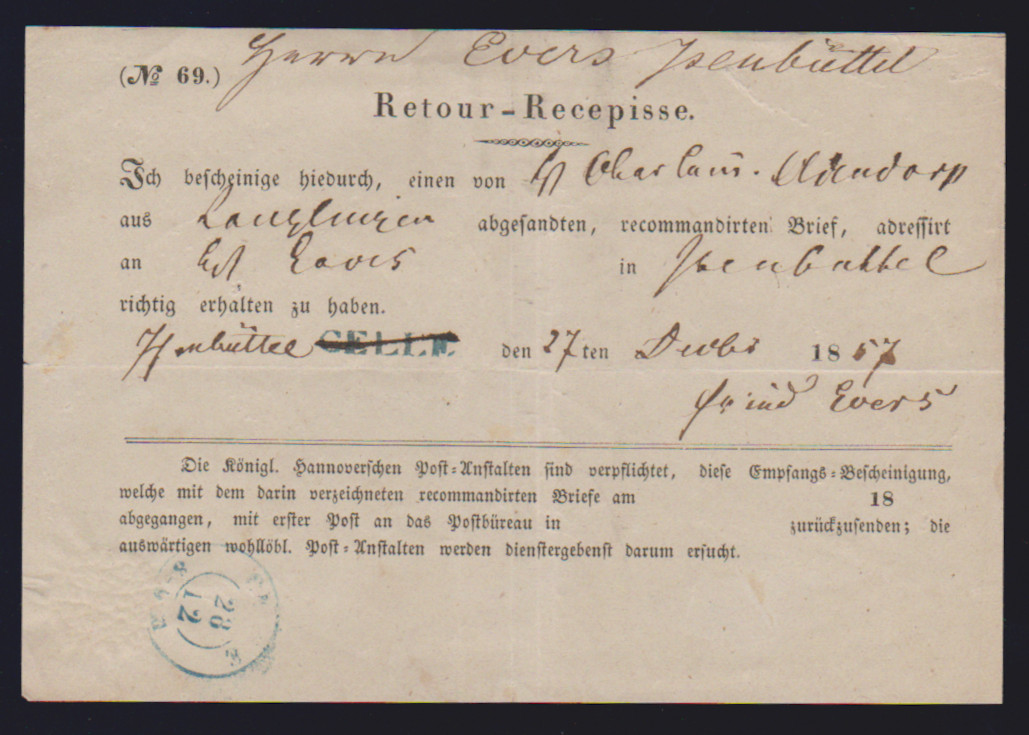 Herrn Evers Isenbüttel
(№ 69.)
Retour-Recepisse.
Ich bescheinige hiedurch, einen von
aus Langlingen abgesandten, recommandirten Brief, adressirt
an Evers in Isenbüttel
richtig erhalten zu haben.
Isenbüttel CELLE den 27ten Decbr 1857
Evers
Die Königl. Hannoverschen Post-Anstalten sind verpflichtet, diese Empfangs-Bescheinigung,
welche mit dem darin verzeichneten recommandirten Briefe am 18
abgegangen, mit erster Post an das Postbüreau in zurückzusenden; die
auswärtigen wohllöbl. Post-Anstalten werden dienstergebenst darum ersucht.
28
12